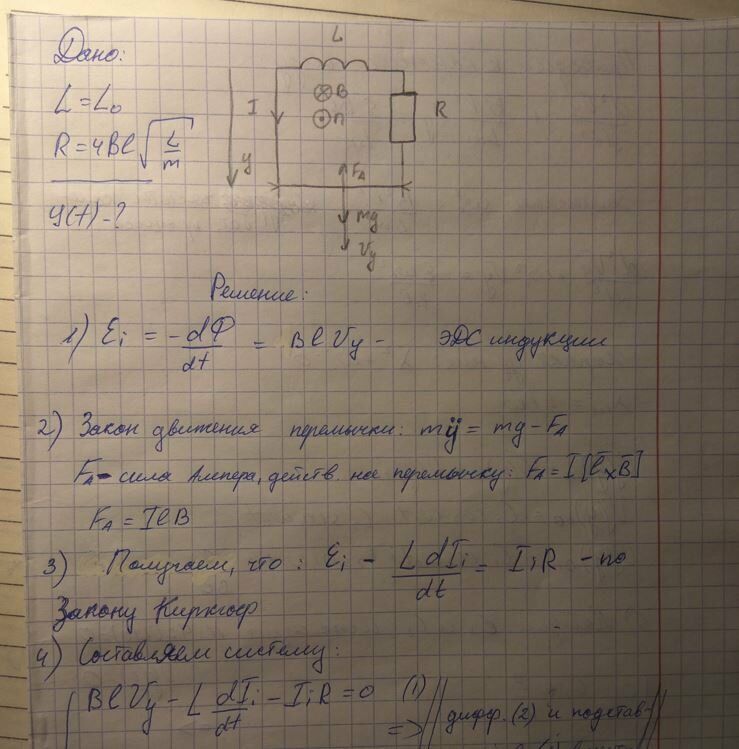 Дано:
L = L₀
R = 4Bl√(L/m)
y(t) - ?
L
I
⊗ B
⊙ n
R
y
F_A
mg
V_y
Решение:
1) Ɛi = -dФ/dt = BlVy - ЭДС индукции
2) Закон движения перемычки: mÿ = mg - F_A
F_A - сила Ампера, действ. на перемычку: F_A = I[l̄ x B̄]
F_A = IlB
3) Получаем, что: Ɛi - L dIi/dt = IiR - по
Закону Киркгоф
4) Составляем систему:
BlVy - L dIi/dt - IiR = 0 (1)
=> || дифф. (2) и подстав- ||